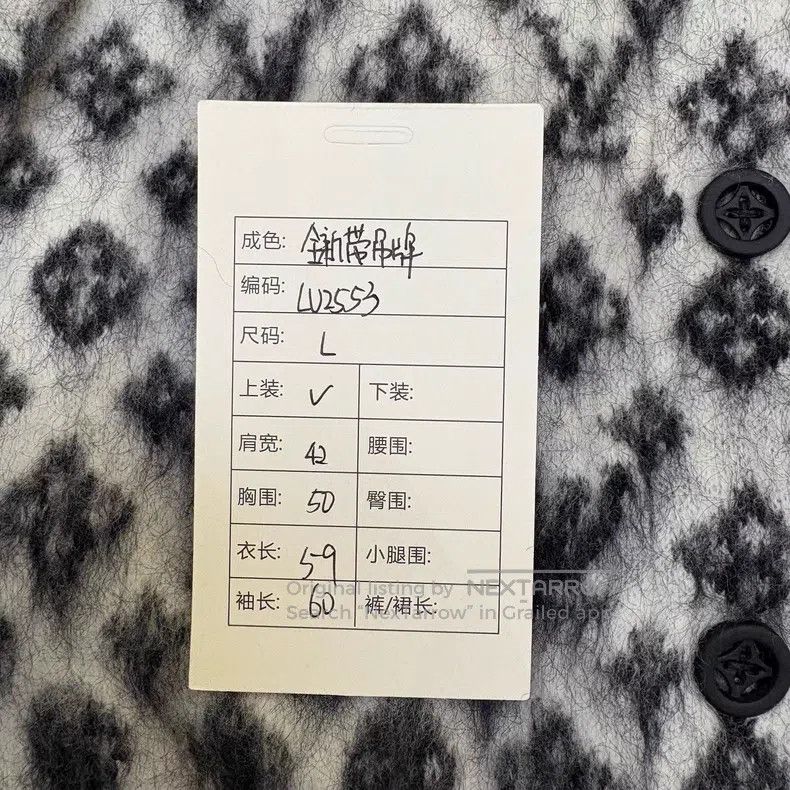 成色: 全新带吊牌
编码: LV2553
尺码: L
上装: ✓ 下装:
肩宽: 42 腰围:
胸围: 50 臀围:
衣长: 59 小腿围:
袖长: 60 裤/裙长:
Original listing by NEXTARROW
Search "NexTarrow" in Grailed app